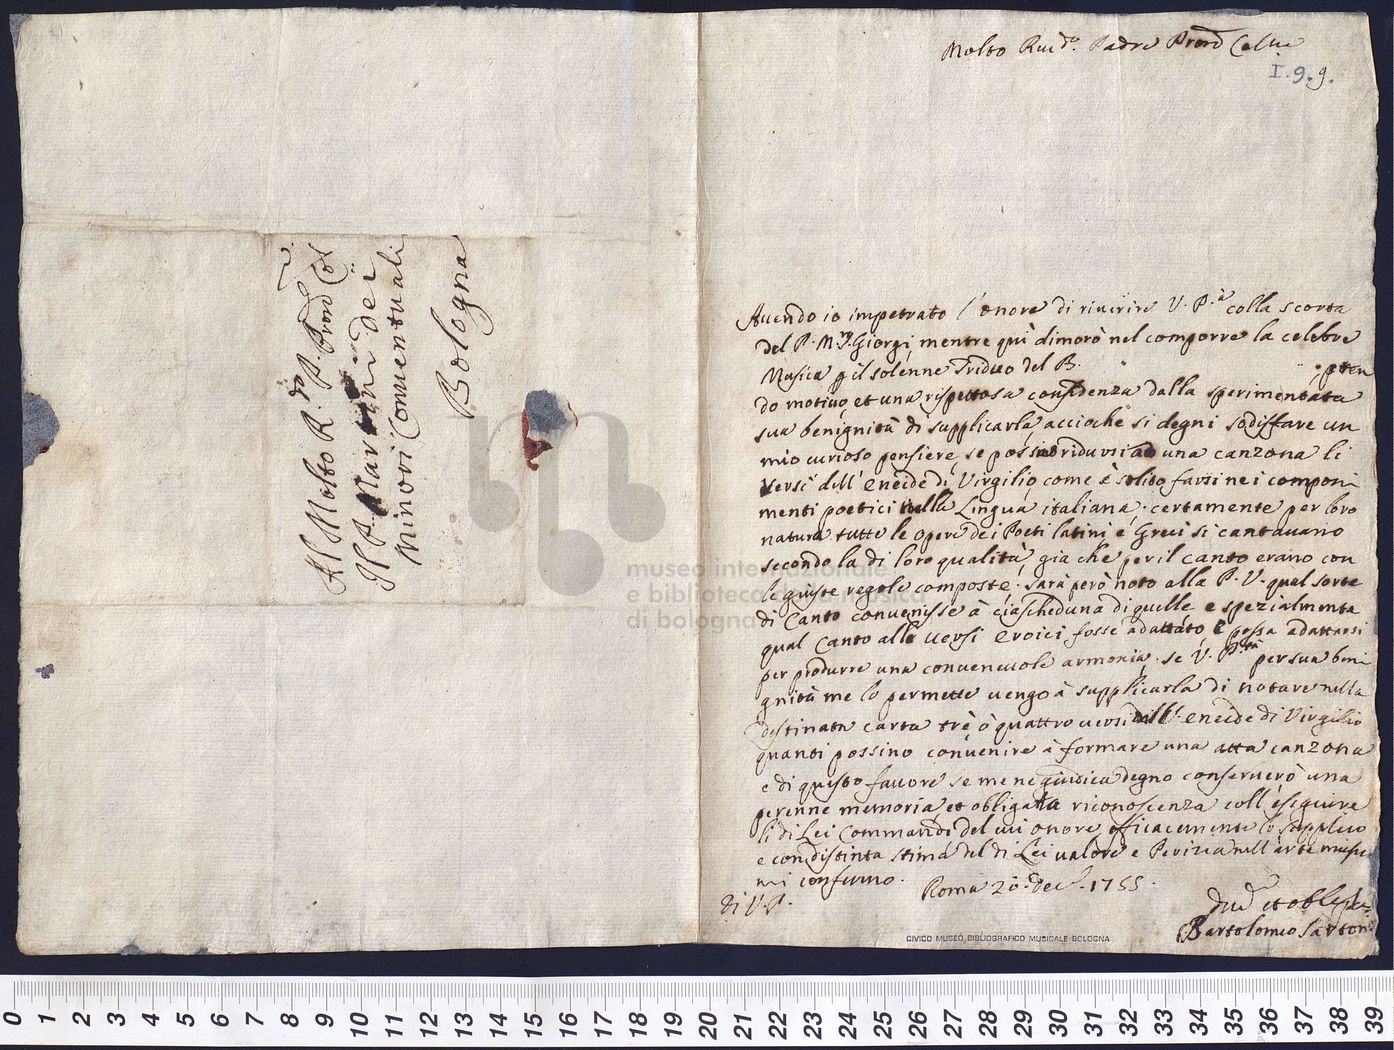 Molto Rend.o Padre Pron Col mo
I. 9. 9.
Al Molto R.do P. Pron Col
Il P. Martini dei
Minori Conventuali
Bologna
Avendo io impetrato l'onore di riverire V. P.tà colla scorta
del P. M.ro Giorgi mentre quì dimorò nel comporre la celebre
Musica p il solenne Triduo del B. pren
do motivo et una rispettosa confidenza dalla sperimentata
sua benignità di supplicarla acciochè si degni sodisfare un
mio curioso pensiere, se possino ridursi ad una canzona li
versi dell'Eneide di Virgilio come è solito farsi nei componi
menti poetici nella Lingua italiana. certamente per loro
natura tutte le opere dei Poeti latini e Greci si cantavano
secondo la di loro qualità, gia che per il canto erano con
le giuste regole composte. sarà però noto alla P. V. qual sorte
di Canto convenisse à ciascheduna di quelle e spezialmente
qual Canto alli versi eroici fosse adattato, e possa adattarsi
per produrre una convenevole armonia. se V. P.tà per sua beni
gnità me lo permette vengo à supplicarla di notare nella
destinata carta trè ò quattro versi dell'Eneide di Virgilio
quanti possino convenire à formare una atta canzona
e di questo favore se me ne giudica degno conserverò una
perenne memoria, et obligata riconoscenza coll'eseguire
li di Lei Commandi del cui onore efficacemente lo supplico
e con distinta stima del di Lei valore e Perizia nell'arte music
mi confermo.
di V. P. Roma 20 Dec. 1755.
Bartolomeo Sartori
CIVICO MUSEO BIBLIOGRAFICO MUSICALE BOLOGNA
museo internazionale
e biblioteca della musica
di bologna
0 1 2 3 4 5 6 7 8 9 10 11 12 13 14 15 16 17 18 19 20 21 22 23 24 25 26 27 28 29 30 31 32 33 34 35 36 37 38 39